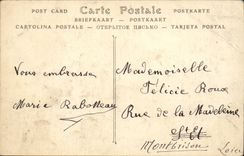 POST CARD Carte Postale POSTKARTE
BRIEFKAART — POSTKAART
CARTOLINA POSTALE — ОТКРЫТОЕ ПИСЬМО — TARJETA POSTAL
Vous embrasse
Marie Rabatteau
Mademoiselle
Félicie Roux
Rue de la Madeleine
St Et
Montbrison
Loire